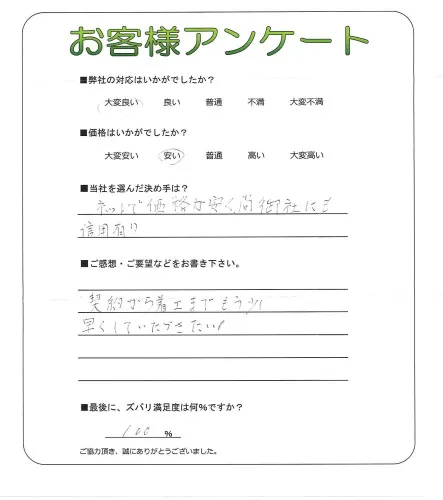 お客様アンケート
■弊社の対応はいかがでしたか？
大変良い 良い 普通 不満 大変不満
■価格はいかがでしたか？
大変安い 安い 普通 高い 大変高い
■当社を選んだ決め手は？
ネットで価格が安く、尚御社にも
信用有り
■ご感想・ご要望などをお書き下さい。
契約から着工までもう少し
早くしていただきたい！
■最後に、ズバリ満足度は何％ですか？
100 ％
ご協力頂き、誠にありがとうございました。